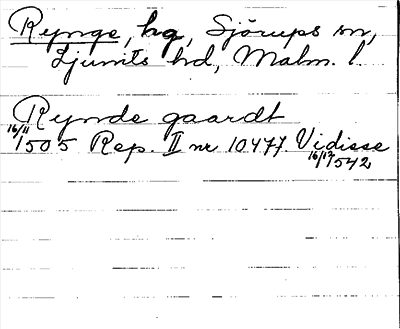 Rynge, hg, Sjörups sn,
Ljunits hd, Malm. l.
Rynde gaardt
16/11 1505 Rep. II nr 10477. Vidisse
16/12 542